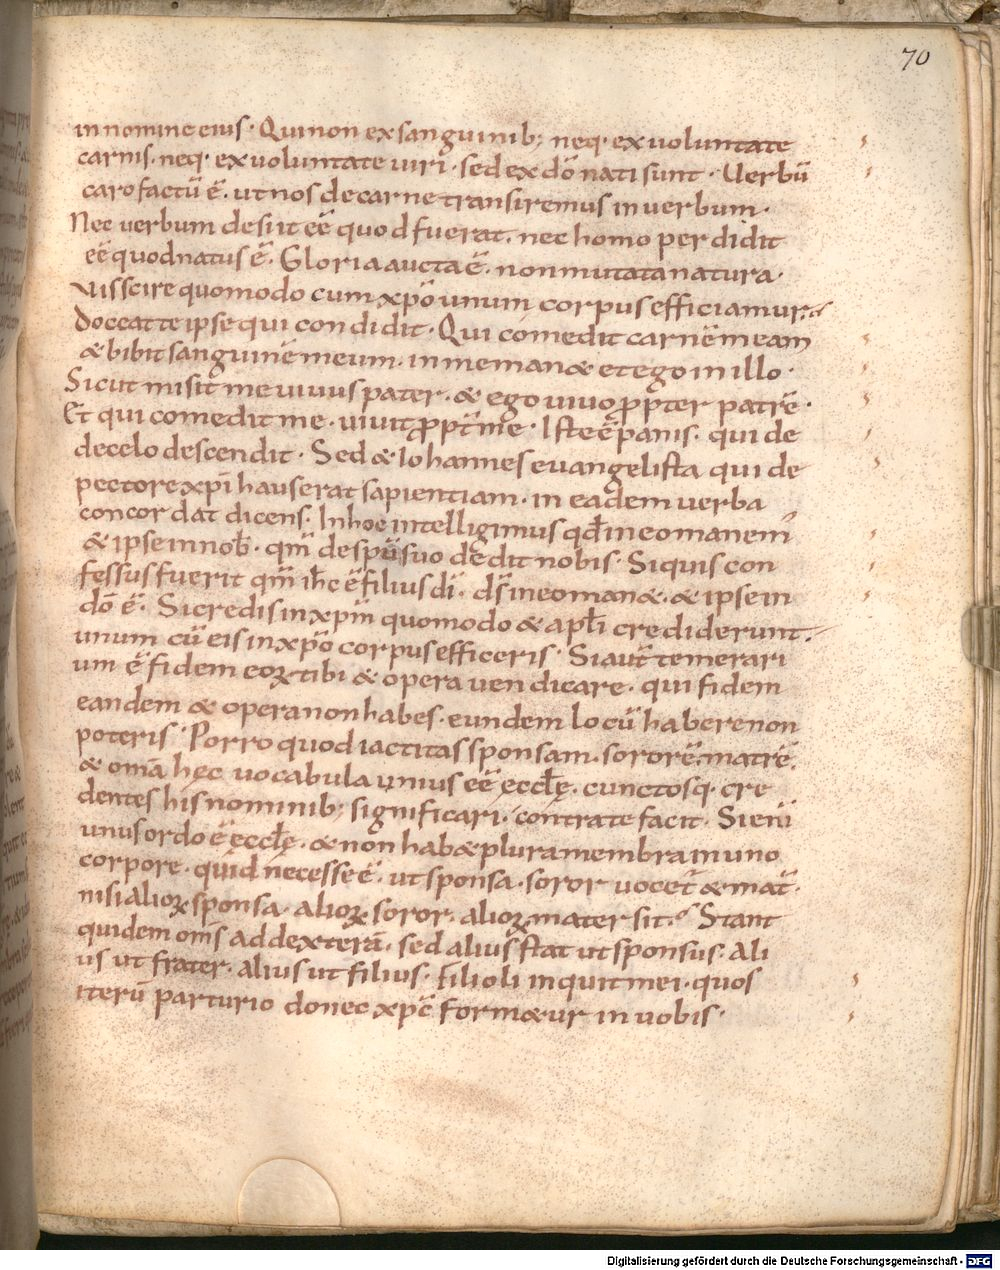 70
in nomine eius · Qui non ex sanguinib; neq· ex voluntate
carnis · neq· ex voluntate viri · sed ex dō nati sunt · Uerbū
caro factū ē · ut nos de carne transiremus in verbum ·
Nec verbum desiit eē quod fuerat · nec homo perdidit
eē quod natus ē · Gloria aucta ē · non mutata natura ·
Vis scire quomodo cum xpō unum corpus efficiamur ·
Doceat te ipse qui condidit · Qui comedit carnē meam
& bibit sanguinē meum · in me man& et ego in illo ·
Sicut misit me vivus pater · & ego vivo ꝓpter patrē ·
Et qui comedit me · vivit ꝓpt̄ me · Iste ē panis · qui de
de celo descendit · Sed & Iohannes evangelista qui de
pectore xpī hauserat sapientiam · in eadem verba
concordat dicens · In hoc intelligimus qd̄ in eo manem̄
& ipse in nob̄ · qm̄ de spū suo dedit nobis · Si quis con
fessus fuerit qm̄ ih̄c ē filius dī · ds̄ in eo man& · & ipse in
dō ē · Si credis in xpm̄ quomodo & apl̄i crediderunt ·
unum cū eis in xpō corpus efficeris · Si aut̄ temerari
um ē fidem eoꝝ tibi & opera vendicare · qui fidem
eandem & opera non habes · eundem locū habere non
poteris · Porro quod iactitas sponsam · sororē · matrē ·
& om̄a hęc vocabula unius eē eccłę · cunctosq· cre
dentes his nominib; significari · contra te facit · Si eni̅
unus ordo ē eccłę · & non hab& plura membra in uno
corpore · quid necesse ē · ut sponsa · soror vocet̄ & mat̄ ·
nisi alioꝝ sponsa · alioꝝ soror · alioꝝ mater sit · Stant
quidem om̄s ad dexterā · sed alius stat ut sponsus · Ali
us ut frater · alius ut filius · Filioli inquit mei · quos
iterū parturio donec xpc̄ form&ur in vobis ·
Digitalisierung gefördert durch die Deutsche Forschungsgemeinschaft - DFG